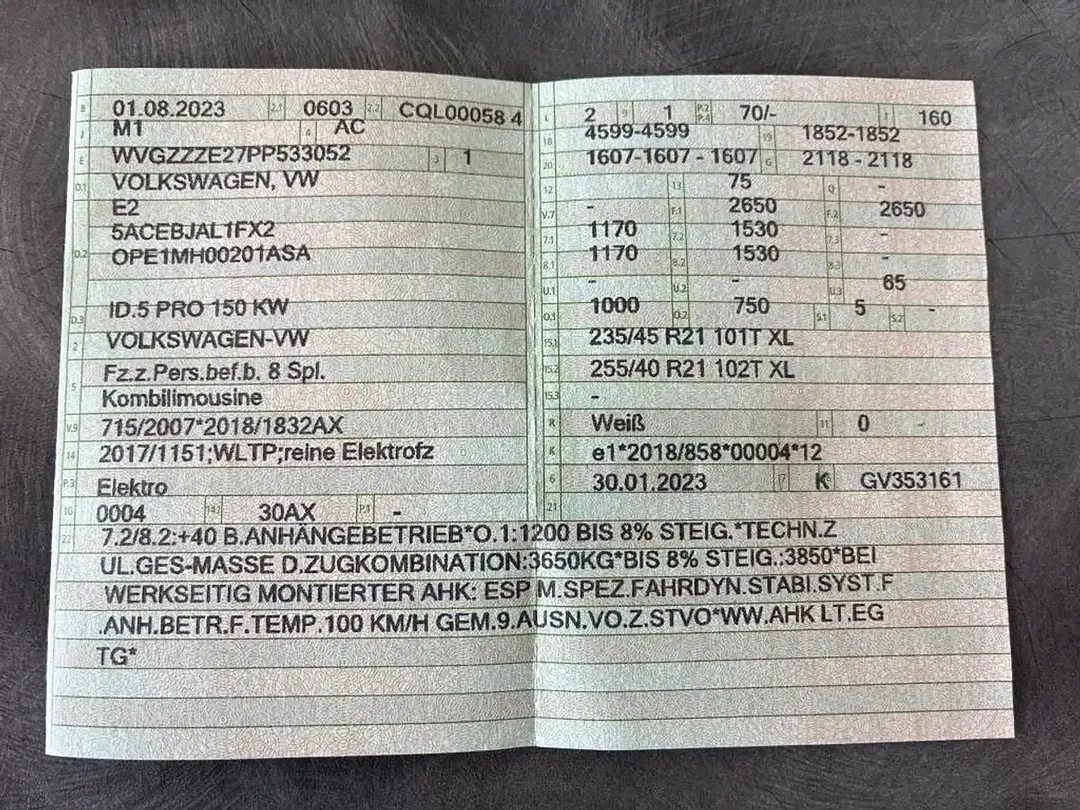 B 01.08.2023 2.1 0603 2.2 CQL00058 4
J M1 4 AC
E WVGZZZE27PP533052 3 1
D.1 VOLKSWAGEN, VW
E2
D.2 5ACEBJAL1FX2
OPE1MH00201ASA
D.3 ID.5 PRO 150 KW
2 VOLKSWAGEN-VW
5 Fz.z.Pers.bef.b. 8 Spl.
Kombilimousine
V.9 715/2007*2018/1832AX
14 2017/1151;WLTP;reine Elektrofz
P.3 Elektro
10 0004 14.1 30AX P.1 -
L 2 9 1 P.2 P.4 70/- T 160
18 4599-4599 19 1852-1852
20 1607-1607 - 1607 G 2118 - 2118
12 - 13 75 Q -
V.7 - F.1 2650 F.2 2650
7.1 1170 7.2 1530 7.3 -
8.1 1170 8.2 1530 8.3 -
U.1 - U.2 - U.3 65
O.1 1000 O.2 750 S.1 5 S.2 -
15.1 235/45 R21 101T XL
15.2 255/40 R21 102T XL
15.3 -
R Weiß 11 0 -
K e1*2018/858*00004*12
6 30.01.2023 17 K 16 GV353161
21
22 7.2/8.2:+40 B.ANHÄNGEBETRIEB*O.1:1200 BIS 8% STEIG.*TECHN.Z
UL.GES-MASSE D.ZUGKOMBINATION:3650KG*BIS 8% STEIG.:3850*BEI
WERKSEITIG MONTIERTER AHK: ESP M.SPEZ.FAHRDYN.STABI.SYST.F
.ANH.BETR.F.TEMP.100 KM/H GEM.9.AUSN.VO.Z.STVO*WW.AHK LT.EG
TG*